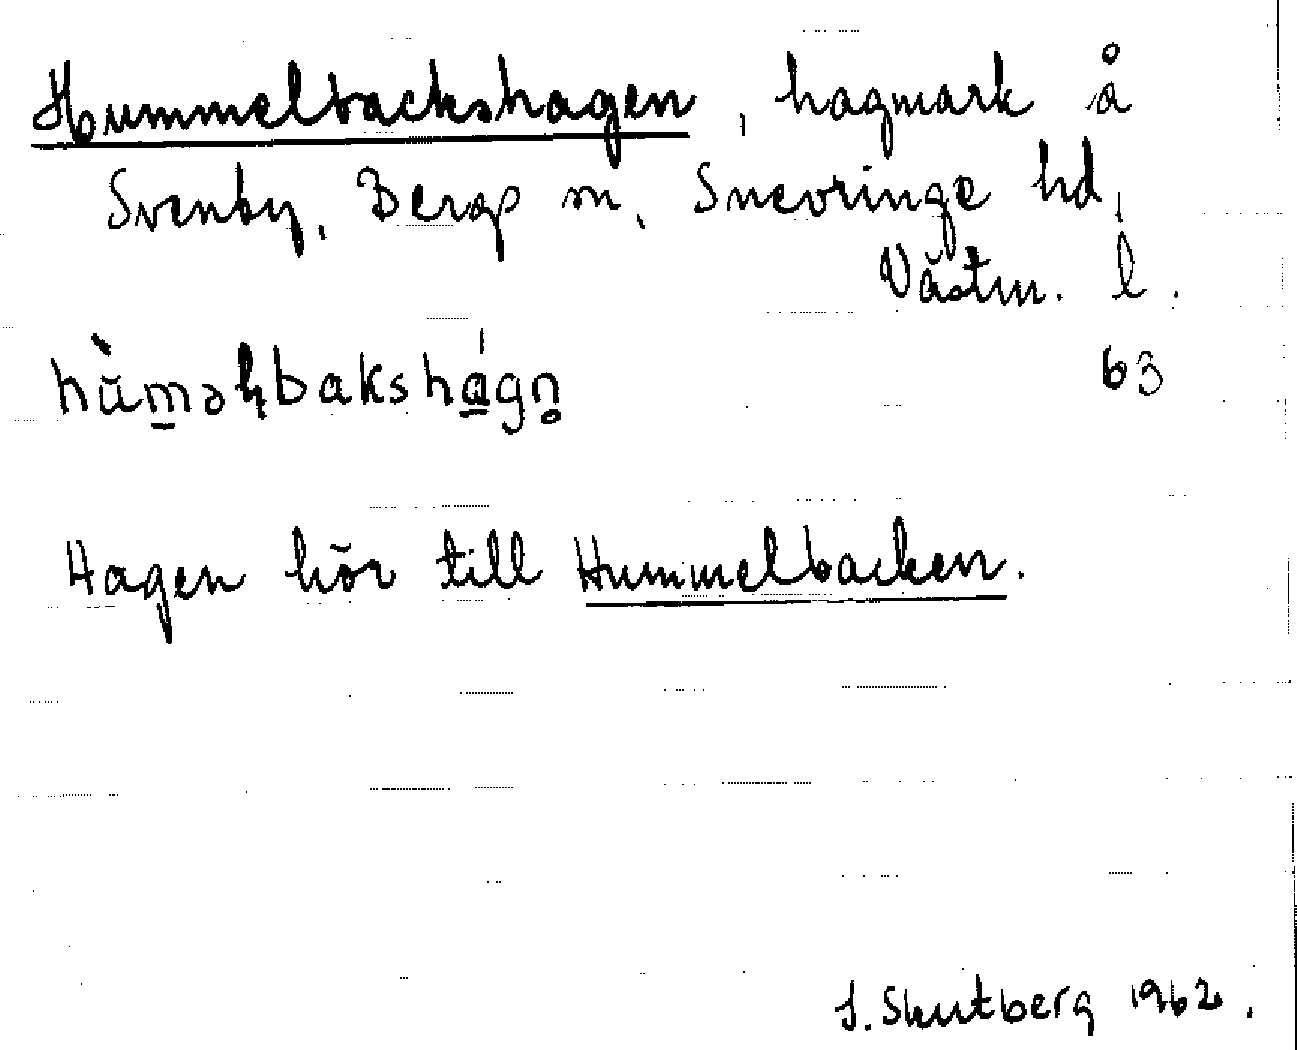 Hummelbackshagen, hagmark å
Svenby, Bergs sn, Snevringe hd,
Västm. l.
63
hùməɫbakshágn̥
Hagen hör till Hummelbacken.
S. Skutberg 1962.